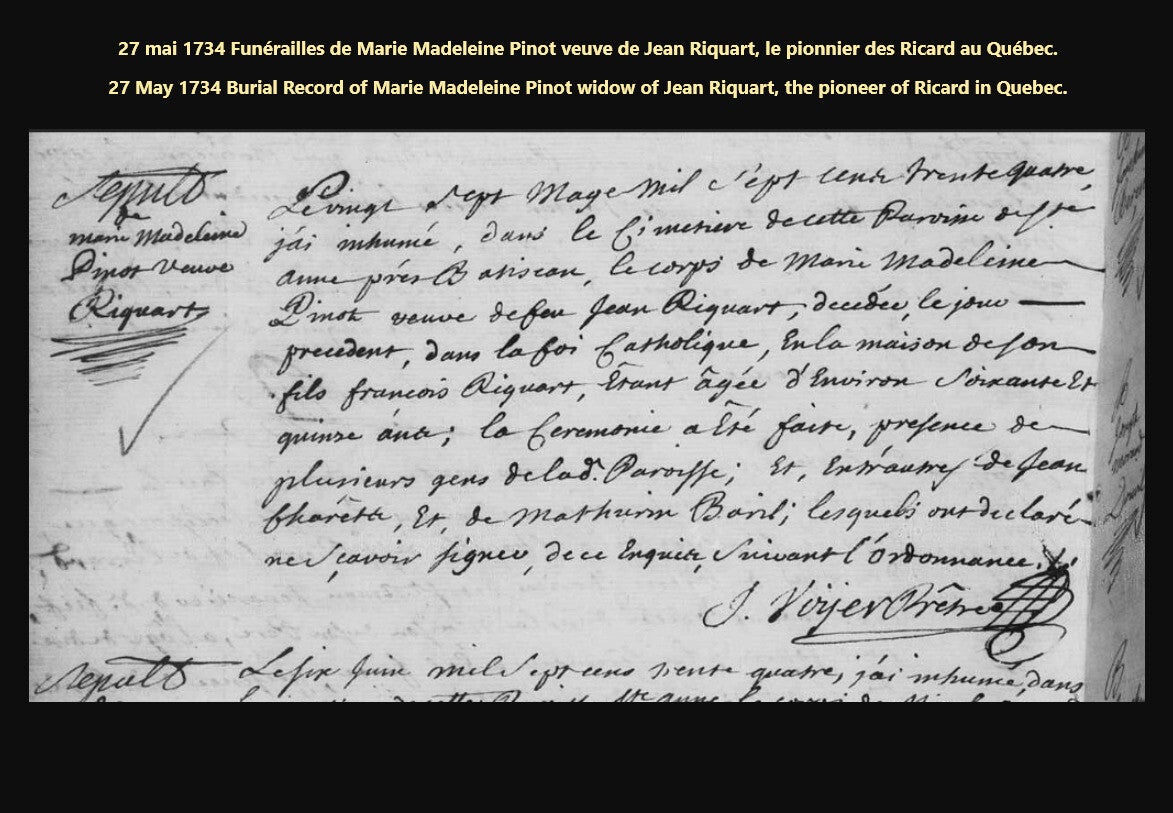 27 mai 1734 Funérailles de Marie Madeleine Pinot veuve de Jean Riquart, le pionnier des Ricard au Québec.
27 May 1734 Burial Record of Marie Madeleine Pinot widow of Jean Riquart, the pioneer of Ricard in Quebec.
Sepult
de
marie Madeleine
Pinot Veuve
Riquart
Le vingt sept Maye Mil sépt cents trente quatre,
j'ái inhumé, dans le Cimetiere de cette Paroisse de Ste
anne prés Batiscan, le corps de Marie Madeleine
Pinot veuve de feu Jean Riquart, decedée, le jour
precedent, dans la foi Catholique, En la maison de son
fils françois Riquart, Étant âgée d'Environ Soixante Et
quinze áns; la Ceremonie a Eté faite, presence de
plusieurs gens de lad. Paroisse; Et, Entr'autres de Jean
Charette, Et, de Mathurin Baril; lesquels ont declaré
ne sçavoir signer, de ce Enquis, suivant l'Ordonnance.
J. Voyer Prêtre
Sepult
Le six Juin mil Sept cens trente quatre, j'ái inhumé, dans